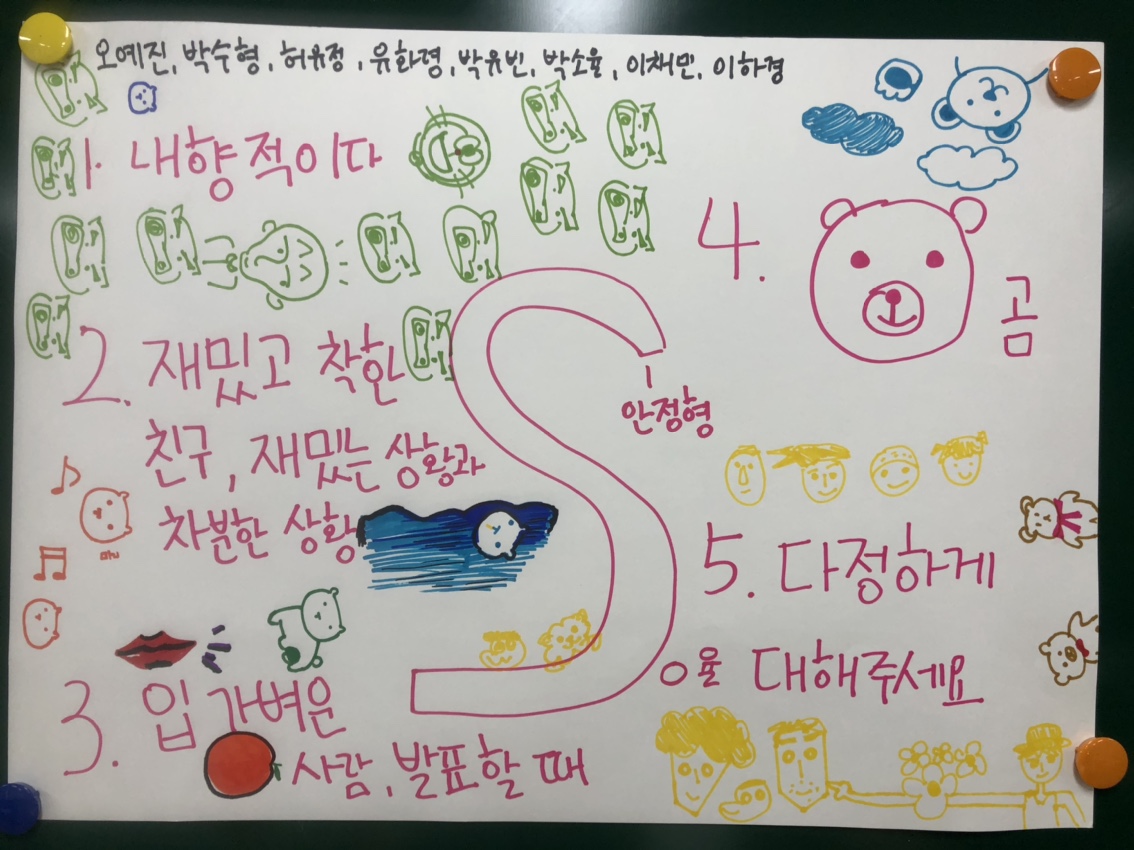 오예진, 박수형, 허유정, 유화령, 박유빈, 박소율, 이채민, 이하경
1. 내향적이다
2. 재밌고 착한
친구, 재밌는 상황과
차분한 상황
3. 입 가벼운
사람, 발표할 때
S
안정형
4.
곰
5. 다정하게
대해주세요